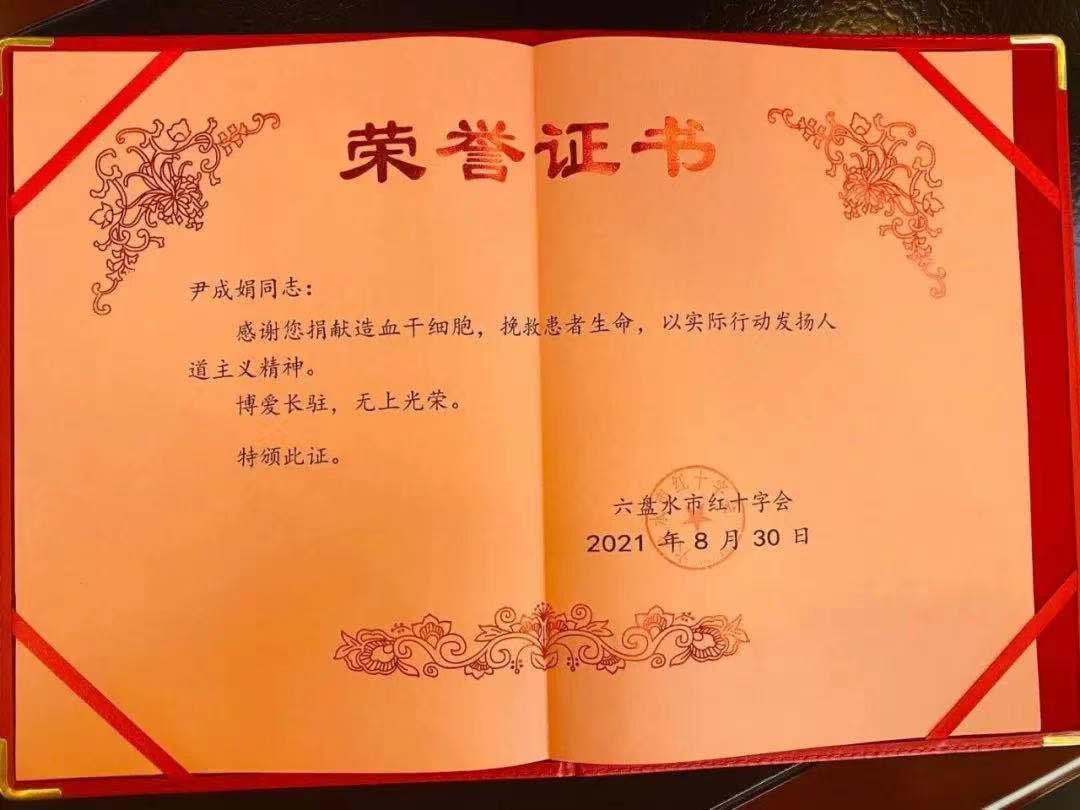 荣誉证书
尹成娟同志：
感谢您捐献造血干细胞，挽救患者生命，以实际行动发扬人
道主义精神。
博爱长驻，无上光荣。
特颁此证。
六盘水市红十字会
2021 年 8 月 30 日